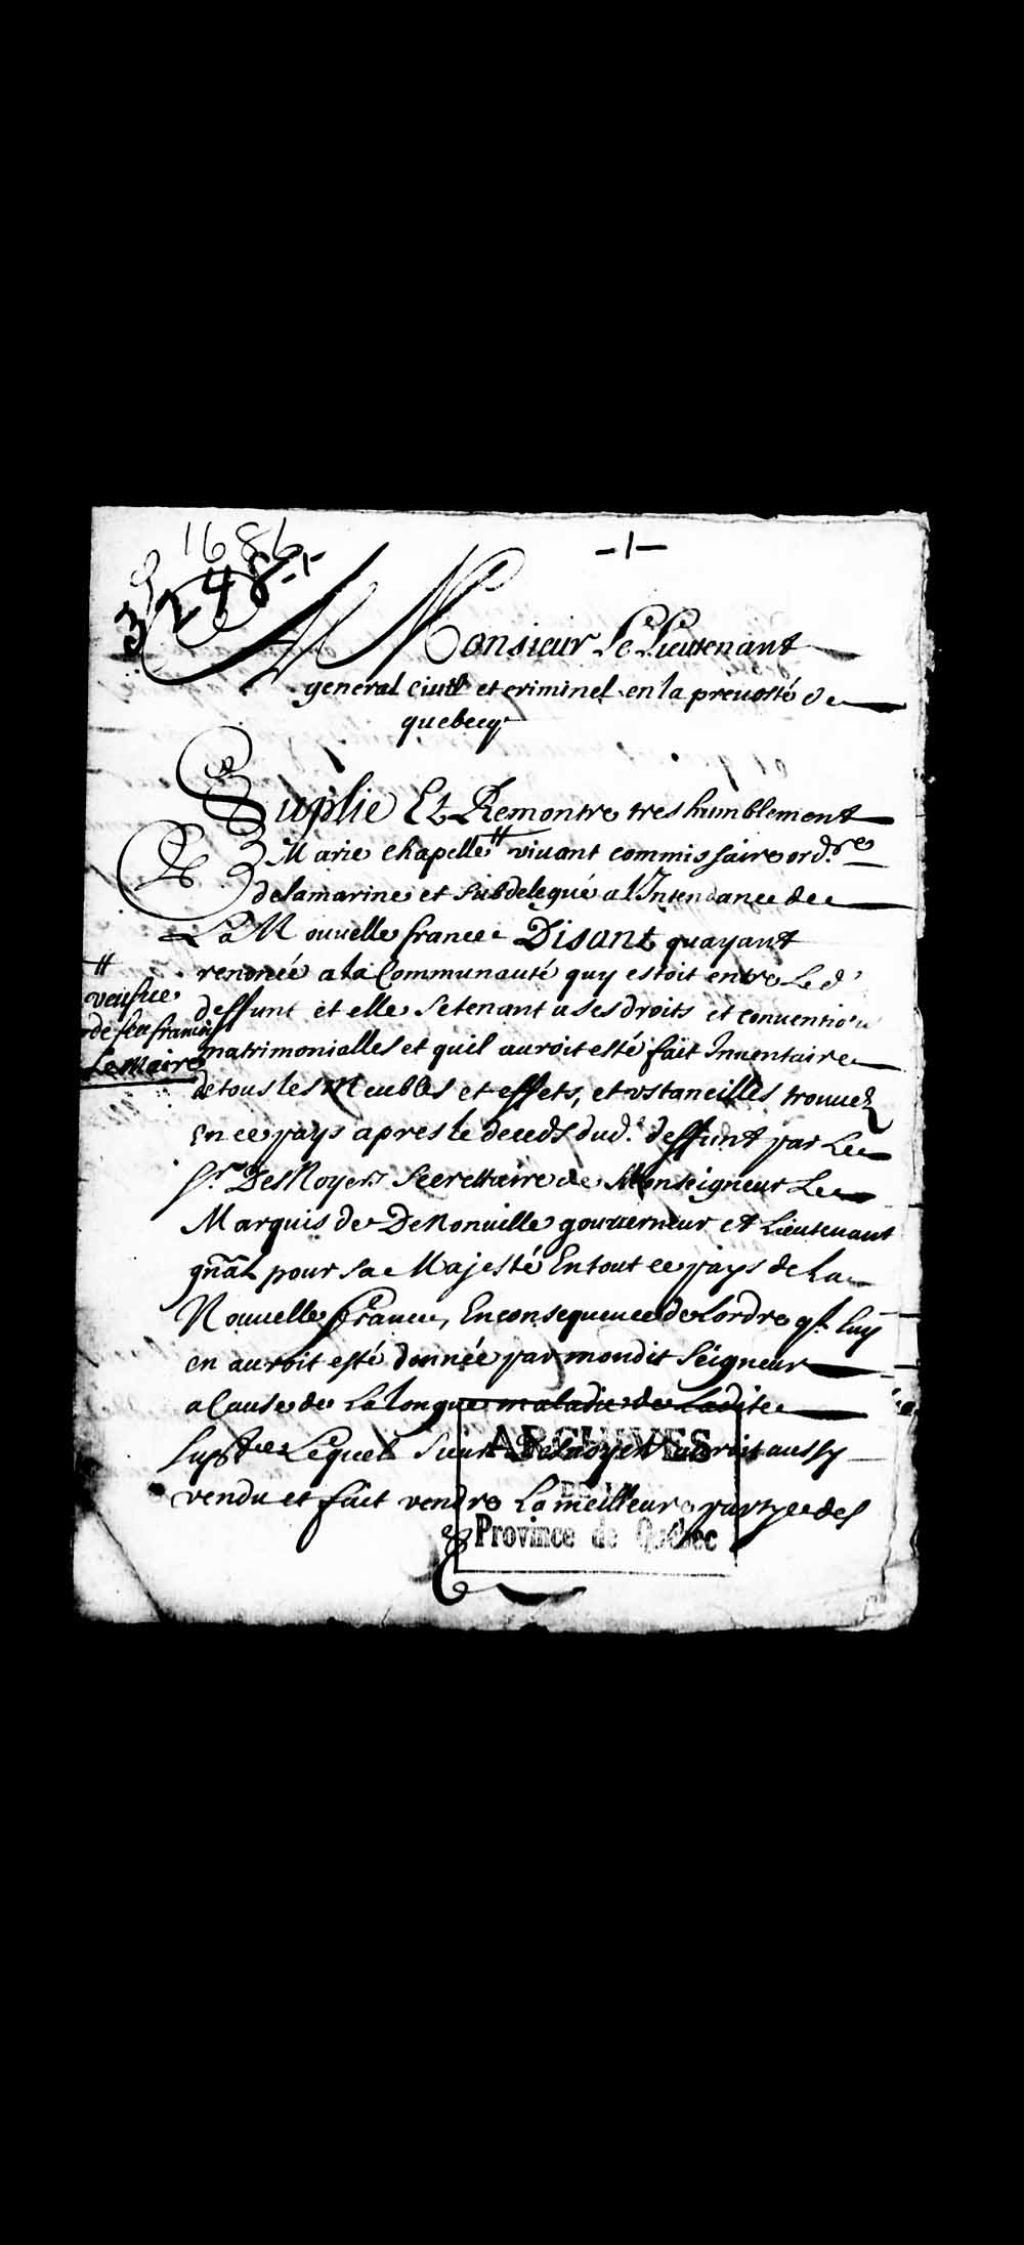 1686
3248
-1-
A Monsieur Le Lieutenant
general Civill et criminel en la prevosté de
quebecq.
Suplie Et Remontre tres humblement
Marie Chapelle # vivant commissaire ordre
de la marine et subdelegué a l'Intendance de
La Nouvelle france Disant quayant
renoncée a la Communauté quy estoit entre Le d'
deffunt et elle se tenant a ses droits et convention
#
veufve
de feu francois
Le Maire
matrimonialles et quil auroit esté fait Inventaire
de tous les Meubles et effets, et ustancilles trouvez
en ce pays apres le deceds dud. deffunt par Le
Sr. DesNoyers Secrettaire de Monseigneur Le
Marquis de Denonville gouverneur et Lieutenant
gnãl pour sa Majesté En tout ce pays de La
Nouvelle france, En consequence de Lordre qu. luy
en auroit esté donnée par mondit Seigneur
a Cause de La longue maladie de Ladite
supte Lequel Sieur Desnoyers auroit aussy
vendu et fait vendre La meilleure partye des
ARCHIVES
Province de Québec